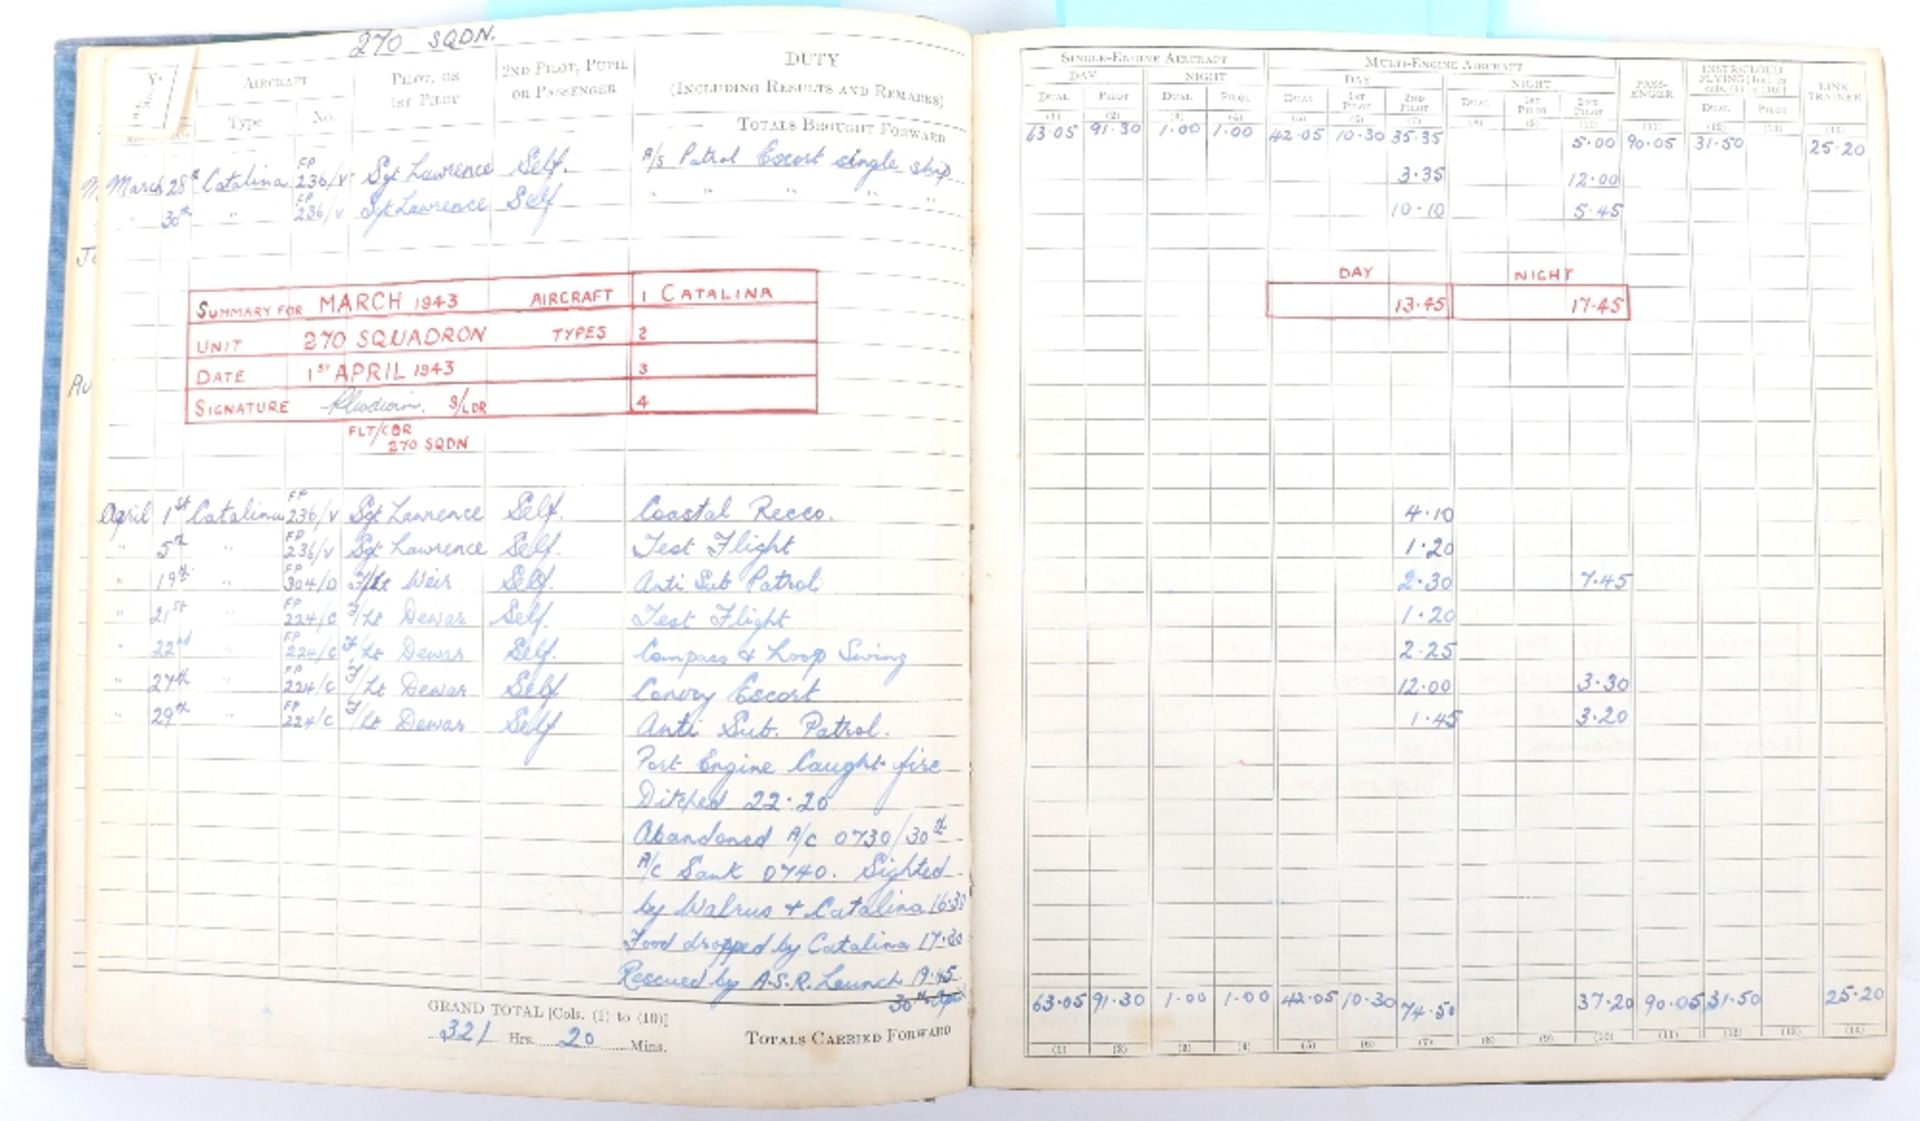 270 SQDN.
AIRCRAFT PILOT, OR 1ST PILOT 2ND PILOT, PUPIL OR PASSENGER DUTY (INCLUDING RESULTS AND REMARKS)
Type No. TOTALS BROUGHT FORWARD
March 28th Catalina FP 236/V Sgt Lawrence Self. A/S Patrol Escort single ship
" 30th " FP 236/V Sgt Lawrence Self " " " " "
SUMMARY FOR MARCH 1943 AIRCRAFT 1 CATALINA
UNIT 270 SQUADRON TYPES 2
DATE 1ST APRIL 1943 3
SIGNATURE S/LDR 4
FLT/CDR
270 SQDN
April 1st Catalina FP 236/V Sgt Lawrence Self. Coastal Recco.
" 5th " FP 236/V Sgt Lawrence Self. Test Flight
" 19th " FP 304/D F/Lt Weir Self. Anti Sub Patrol
" 21st " FP 224/C F/Lt Dewar Self. Test Flight
" 22nd " FP 224/C F/Lt Dewar Self. Compass & Loop Swing
" 27th " FP 224/C F/Lt Dewar Self Convoy Escort
" 29th " FP 224/C F/Lt Dewar Self Anti Sub. Patrol.
Port Engine Caught fire
Ditched 22.20
Abandoned A/C 0730/30th
A/C Sank 0740. Sighted
by Walrus + Catalina 16.30
Food dropped by Catalina 17.30
Rescued by A.S.R. Launch 19.45
30th Apl
GRAND TOTAL [Cols. (1) to (10)]
321 Hrs. 20 Mins. TOTALS CARRIED FORWARD
SINGLE-ENGINE AIRCRAFT MULTI-ENGINE AIRCRAFT PASS-ENGER INSTR/CLOUD FLYING [Incl. in cols. (1) to (10)] LINK TRAINER
DAY NIGHT DAY NIGHT
DUAL PILOT DUAL PILOT DUAL 1ST PILOT 2ND PILOT DUAL 1ST PILOT 2ND PILOT DUAL PILOT
(1) (2) (3) (4) (5) (6) (7) (8) (9) (10) (11) (12) (13) (14)
63.05 91.30 1.00 1.00 42.05 10.30 35.35 5.00 90.05 31.50 25.20
3.35 12.00
10.10 5.45
DAY NIGHT
13.45 17.45
4.10
1.20
2.30 7.45
1.20
2.25
12.00 3.30
1.45 3.20
63.05 91.30 1.00 1.00 42.05 10.30 74.50 37.20 90.05 31.50 25.20
(1) (2) (3) (4) (5) (6) (7) (8) (9) (10) (11) (12) (13) (14)